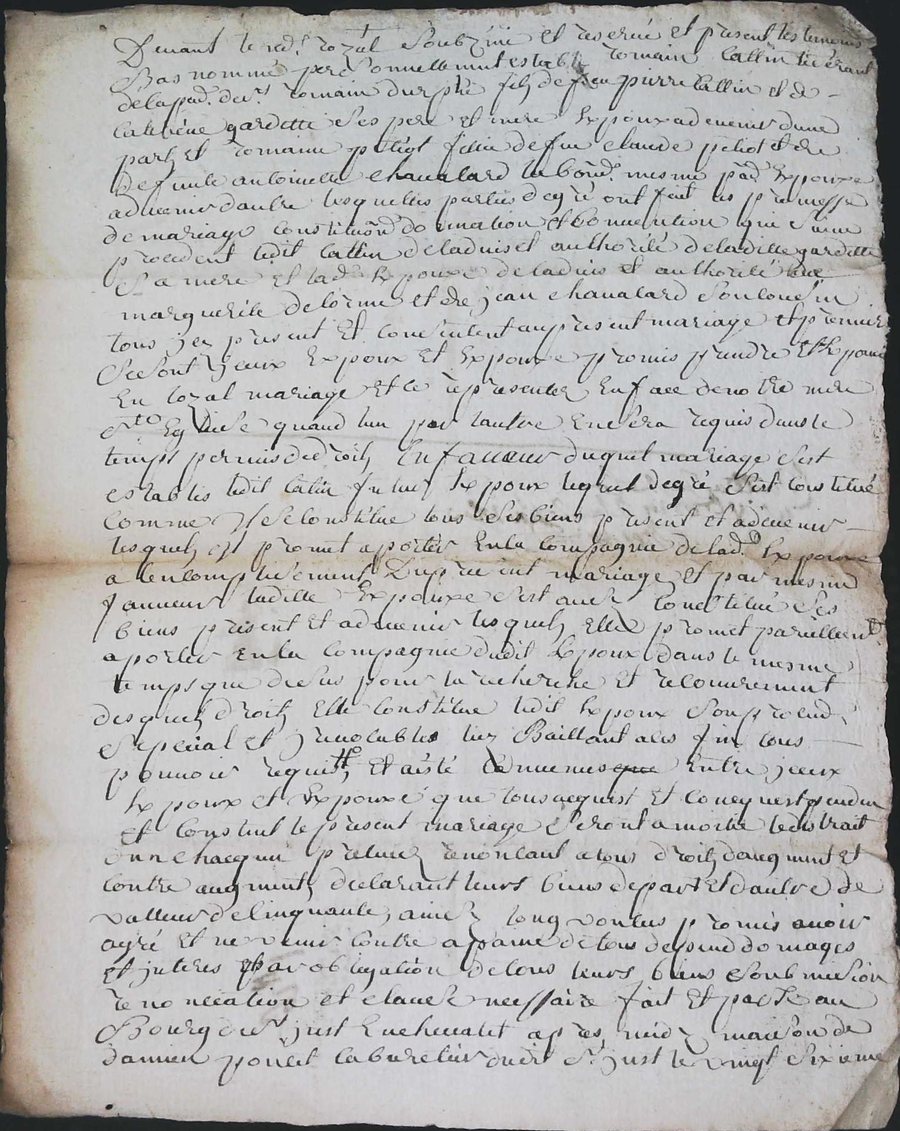 Devant le no.re royal Soubz.né et reservé et present les temoins
Bas nommé personnellement estably romain Cattin tixerant
delapad. de s.t romain durphé filz de feu pierre Cattin et de
Caterine gardette Ses pere et mere Expoux advenir dune
part et romaine periot fille de feu claude periot et de
deffunte antoinette chavalard la bond. mesme pad. Expouxe
advenir dautre lesquelles parties de gré ont fait les promesse
de mariage constitution donnation et convention qui Suive
procedent ledit Cattin deladvis et authorité deladitte gardette
Sa mere et lad. Expouxe deladvis et authorité de
marguerite delorme et de jean chavalard Son Cousin
tous icy present et Consentent au present mariage et premier
Se Sont iceux Expoux et Expouxe promis prendre et Expouser
En loyal mariage et ce representer En face de notre mere
S.te Eglise quand lun par lautre En Sera requis dans le
temps permis de droitz En faveur duquel mariage Sest
establis ledit Catin futur Expoux lequel de gré Sest Constitué
Comme il Se Constitue tous Ses biens present et advenir
lesquels il promet aporter En la Compagnie de lad. Expouxe
a lencomplissement Du present mariage et par mesme
faveur laditte Expouxe Sest aussi Constitué Ses
biens present et advenir lesquels Elle promet pareillement
aporter En la Compagnie dudit Expoux dans le mesme
temps que dessus pour la recherche et recouvrement
desquels droitz Elle Constitue ledit Expoux Son procud.
Special et irrevocables luy Baillant a ces fin tous
pouvoir requis Et a esté Convenus Entre iceux
Expoux et Expouxe que tous acquest et Conquest pendant
et Constant le present mariage Seront a moitie
dun chacun renoncant a tous droitz daugment et
Contre augment declarant leurs biens de part et dautre de
valleur de Cinquante Long voulus promis avoir
agré et ne venir Contre a paine de tous despend domages
et interes Et par obligation de tous leurs biens Soubmision
renonciation et clause necessaire fait et passé au
Bourg de S.t just En chevalet apres midy maison de
damien poncet Cabaretier dudit S.t just le vingt Sixieme